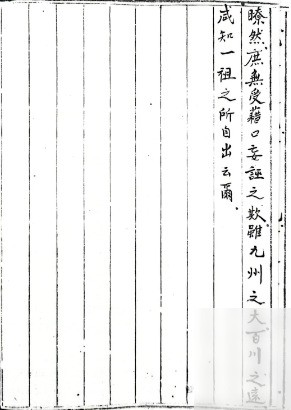 瞭然庶無受藉口妄誣之欺雖九州之大百川之遠
咸知一祖之所自出云爾